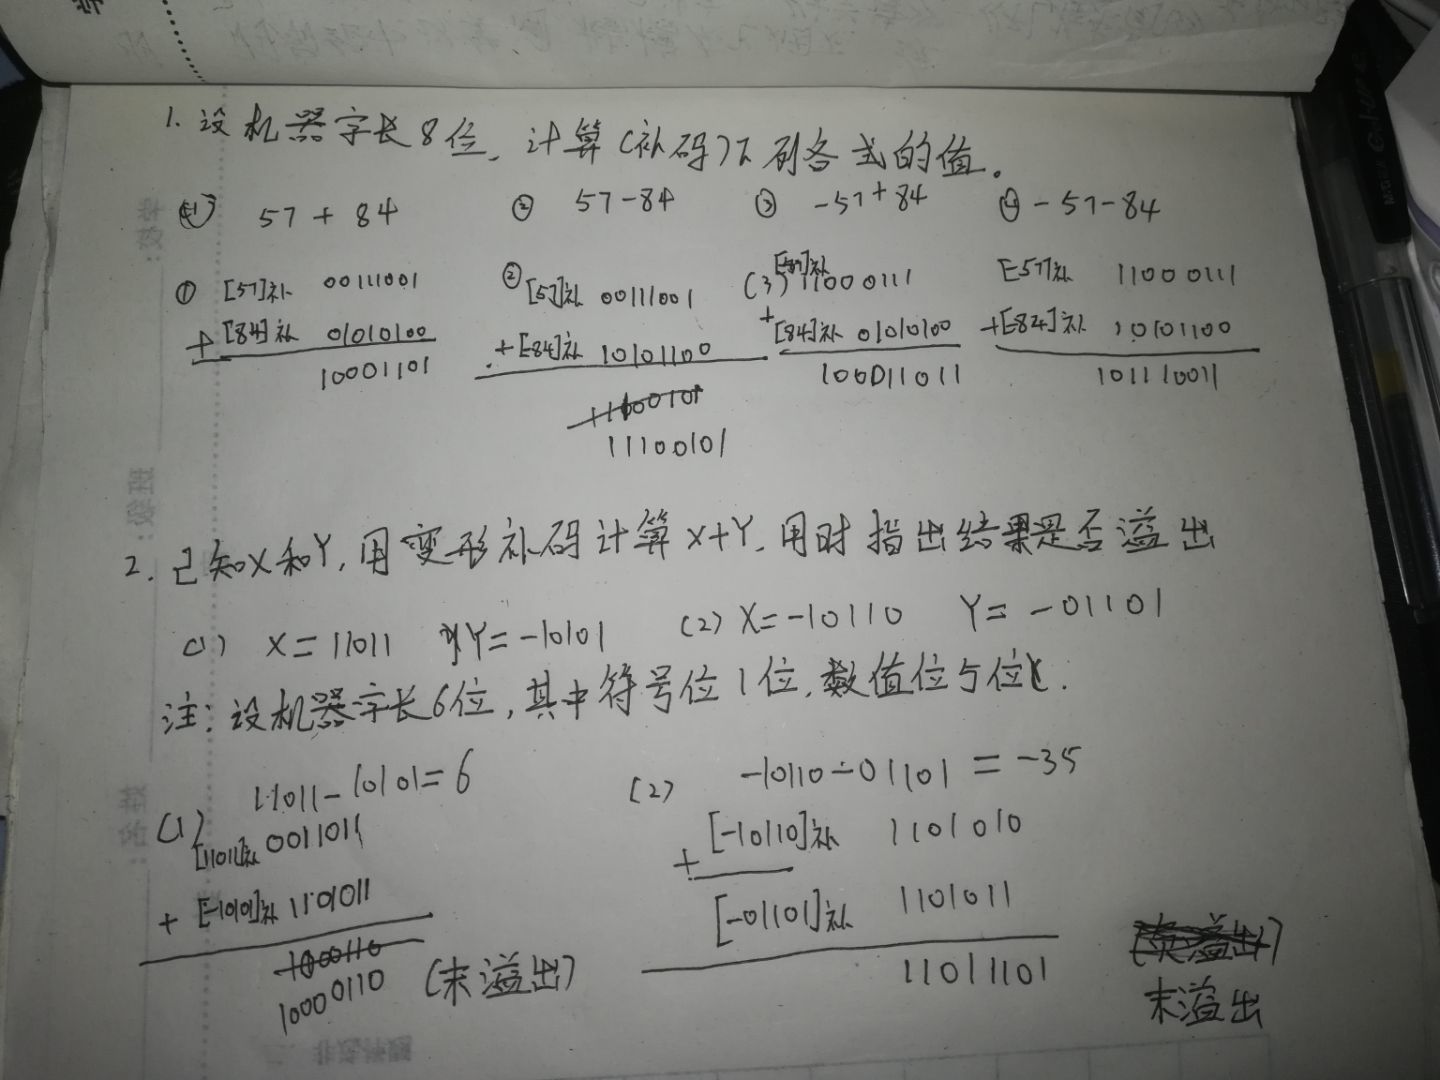 1. 设机器字长8位，计算(补码)下列各式的值。
① 57 + 84 ② 57-84 ③ -57+84 ④ -57-84
① [57]补 00111001 ② [57]补 00111001 (3) [-57]补 11000111 [-57]补 11000111
+ [84]补 01010100 + [-84]补 10101100 + [84]补 01010100 + [-84]补 10101100
10001101 11100101 100011011 101110011
2. 已知X和Y，用变形补码计算X+Y，用时指出结果是否溢出
(1) X = 11011 Y = -10101 (2) X = -10110 Y = -01101
注：设机器字长6位，其中符号位1位，数值位5位.
11011-10101=6 (2) -10110-01101 = -35
(1) [11011]补 0011011 [-10110]补 1101010
+ [-10101]补 1101011 + [-01101]补 1101011
10000110 (未溢出) 11011101 未溢出